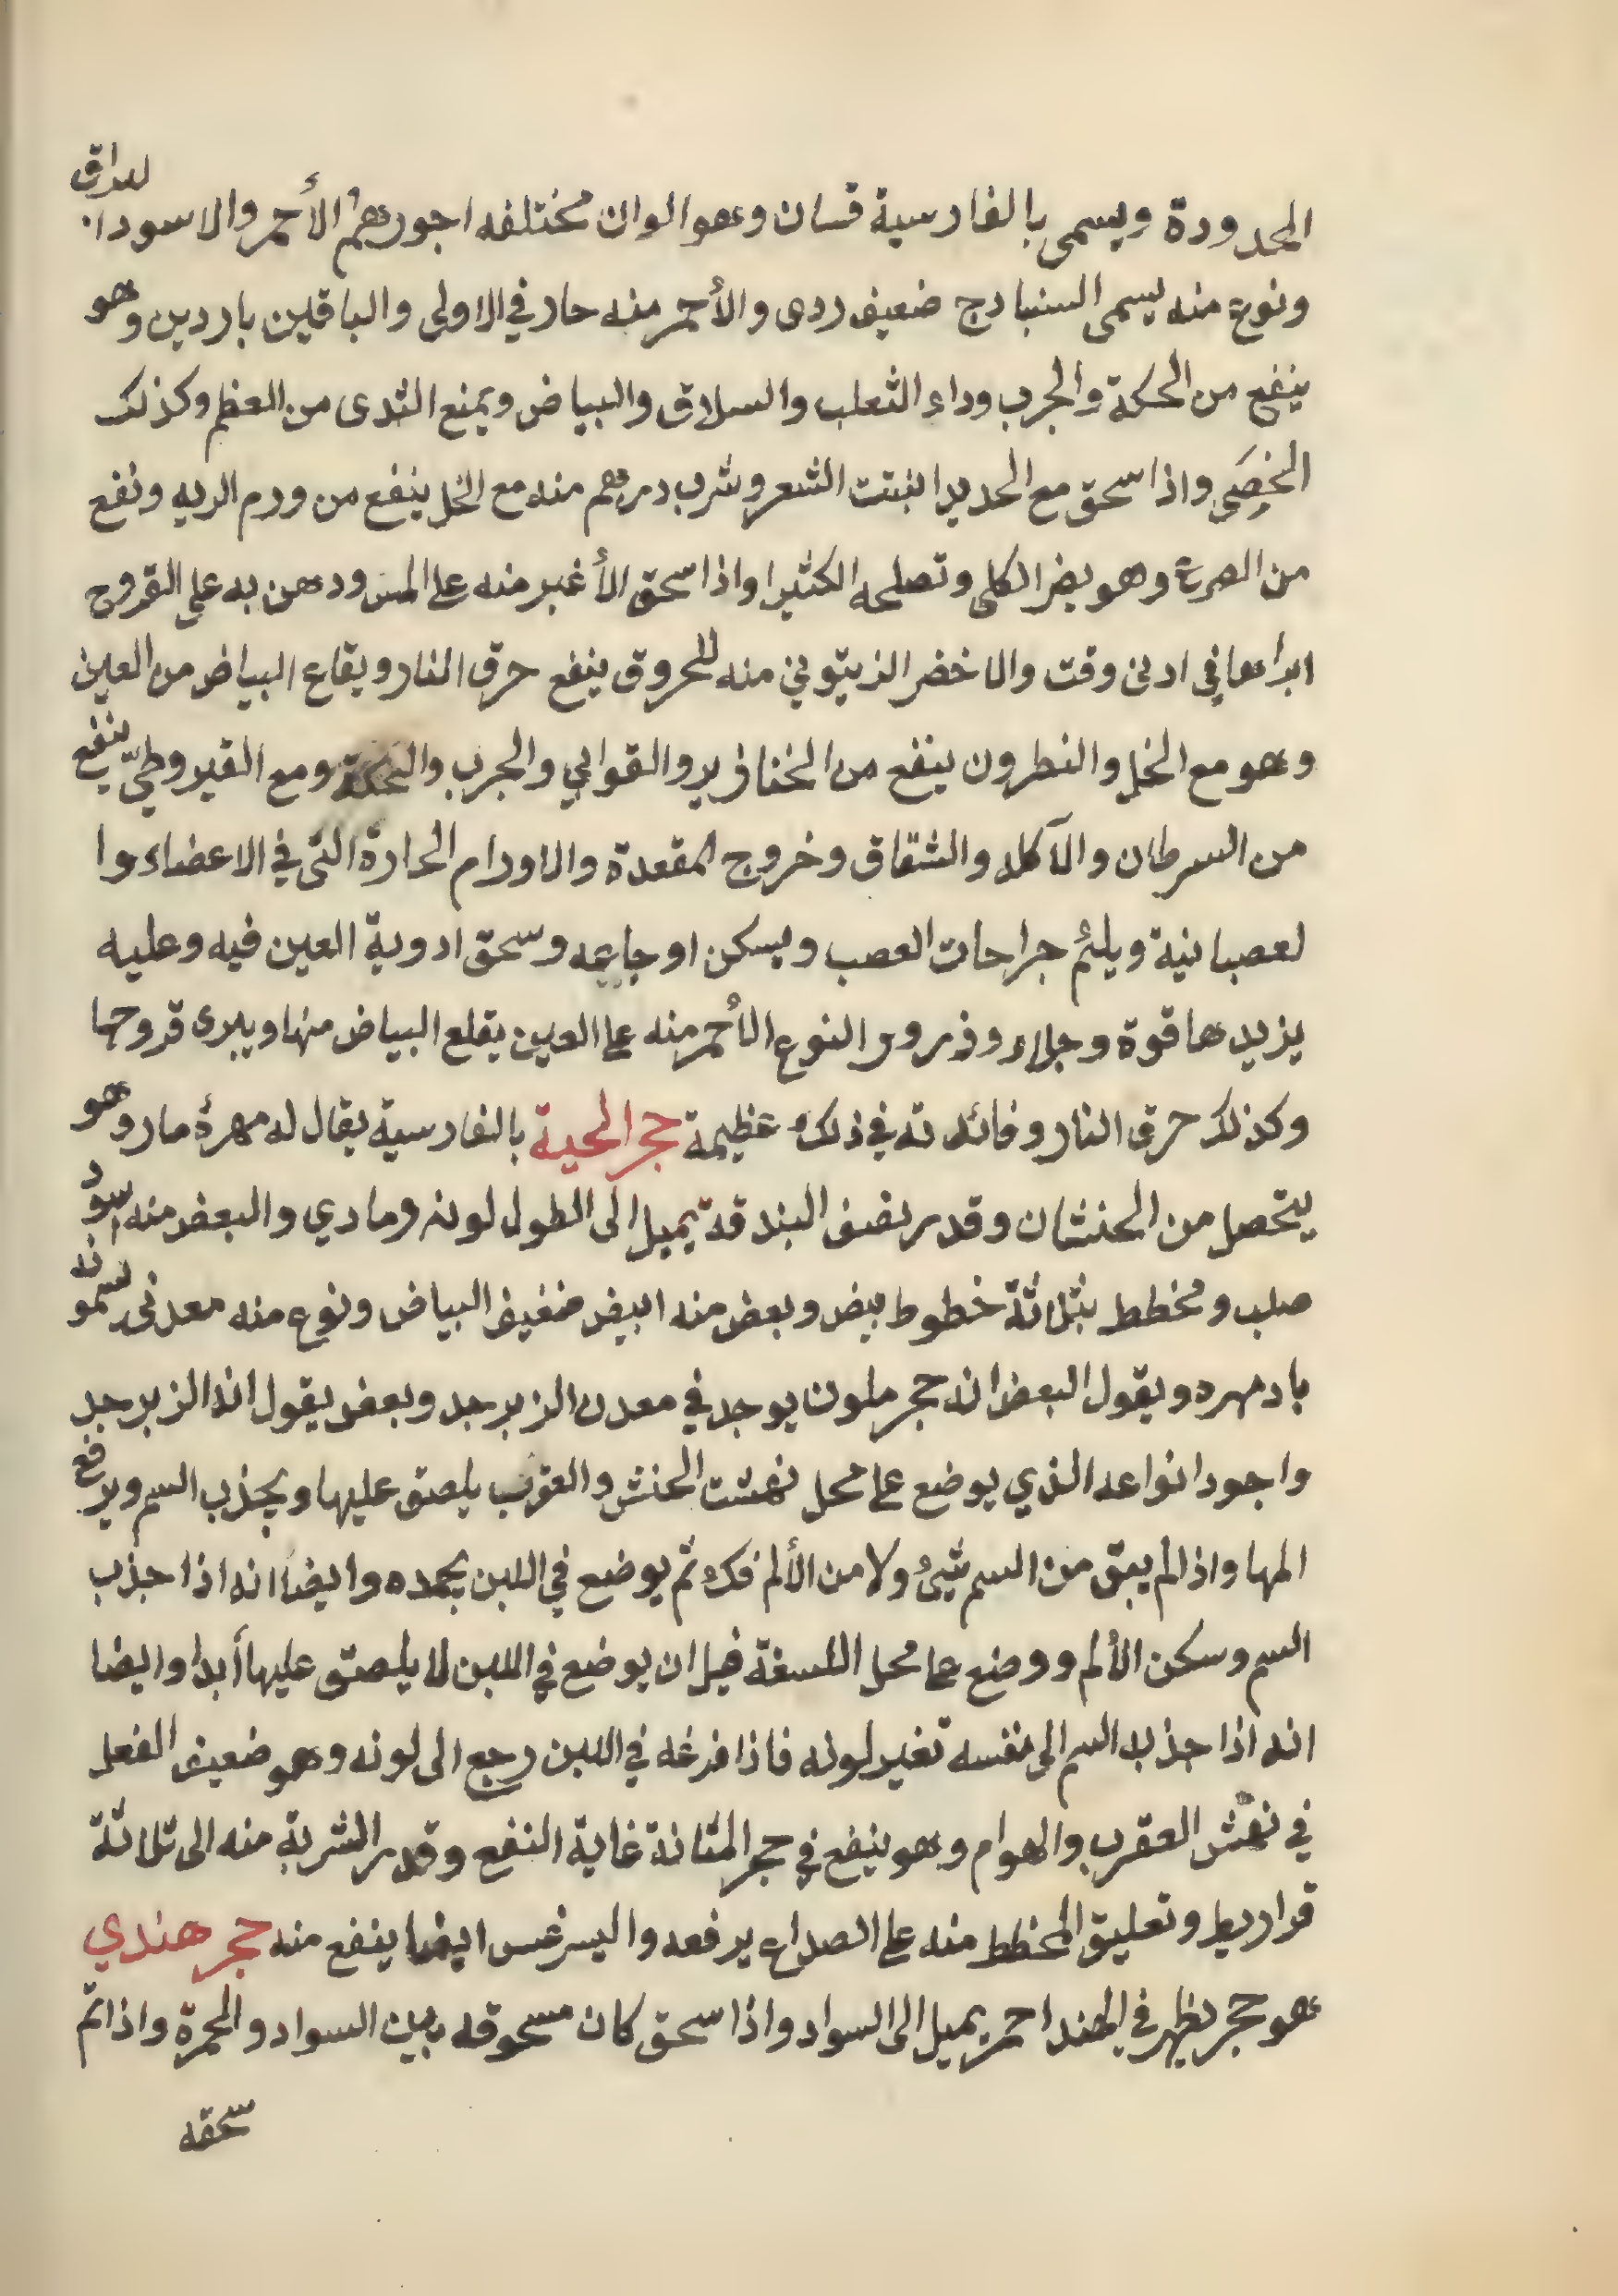 المحدودة ويسمى بالفارسية فسان وهو الوان مختلفه اجودهم الأحمر والاسود البراق
ونوع منه يسمى السنبادج ضعيف ردى والأحمر منه حار في الاولى والباقين باردين وهو
ينفع من الحكة والجرب وداء الثعلب والسلاق والبياض ويمنع الثدى من العظم وكذلك
الخصى واذا سحق مع الحديد انبتت الشعر وشرب درهم منه مع الخل ينفع من ورم الريه ونفع
من الصرع وهو يضر الكلى وتصلحه الكثيرا واذا سحق الأغبر منه على المسن ودهن به على القروح
ابراها في ادنى وقت والاخضر الزيتوني منه للحروق ينفع حرق النار ويقلع البياض من العين
وهو مع الخل والنطرون ينفع من الخنازير والقوابي والجرب والحكة ومع القيروطي ينفع
من السرطان والآكله والشقاق وخروج المقعدة والاورام الحارة التى في الاعضاء وا
لعصبانية ويلئم جراحات العصب ويسكن اوجاعه وسحق ادوية العين فيه وعليه
يزيدها قوة وجلاء وذرور النوع الأحمر منه على العين يقلع البياض منها ويبرى قروحها
وكذلك حرق النار وفائدته في ذلك عظيمة حجر الحية بالفارسية يقال له مهرۀ مار وهو
يتحصل من الحنشان وقدر نصف البندقة يميل الى الطول لونه رمادي والبعض منه اسود
صلب ومخطط بثلاثة خطوط بيض وبعض منه ابيض ضعيف البياض ونوع منه معدنى يسمونه
بادمهره ويقول البعض انه حجر ملون يوجد في معدن الزبرجد وبعض يقول انه الزبرجد
واجود انواعه الذي يوضع على محل نهشت الحنش والعقرب يلصق عليها ويجذب السم ويرفع
المها واذا لم يبق من السم شيئ ولا من الألم فك ثم يوضع في اللبن يجمده وايضا انه اذا جذب
السم وسكن الألم ووضع على محل اللسعة قبل ان يوضع في اللبن لا يلصق عليها أبدا وايضا
انه اذا جذب السم الى نفسه تغير لونه فاذا فرغه في اللبن رجع الى لونه وهو ضعيف الفعل
في نهش العقرب والهوام وهو ينفع في حجر المثانة غاية النفع وقدر الشربة منه الى ثلاثة
قراريط وتعليق المخطط منه على الصداع يرفعه والليسرغس ايضا ينفع منه حجر هندي
هو حجر يظهر في الهند احمر يميل الى السواد واذا سحق كان مسحوقه بين السواد والحمرة واذا تم
سحقه